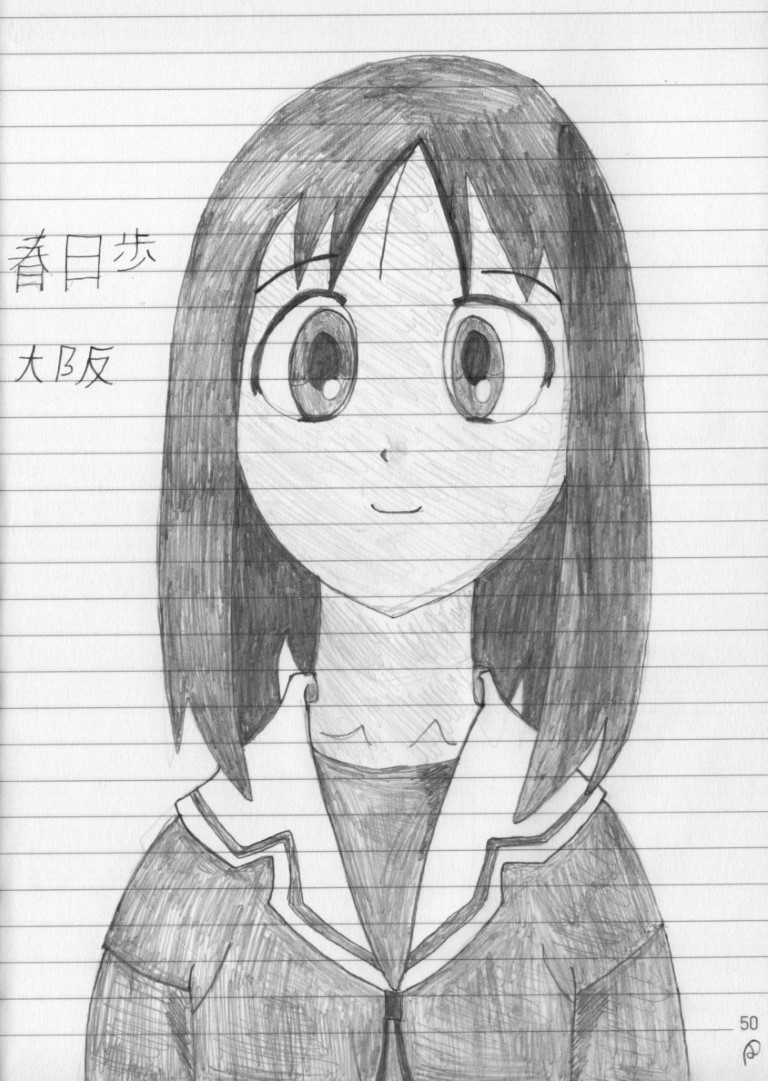 春日歩
大阪
50